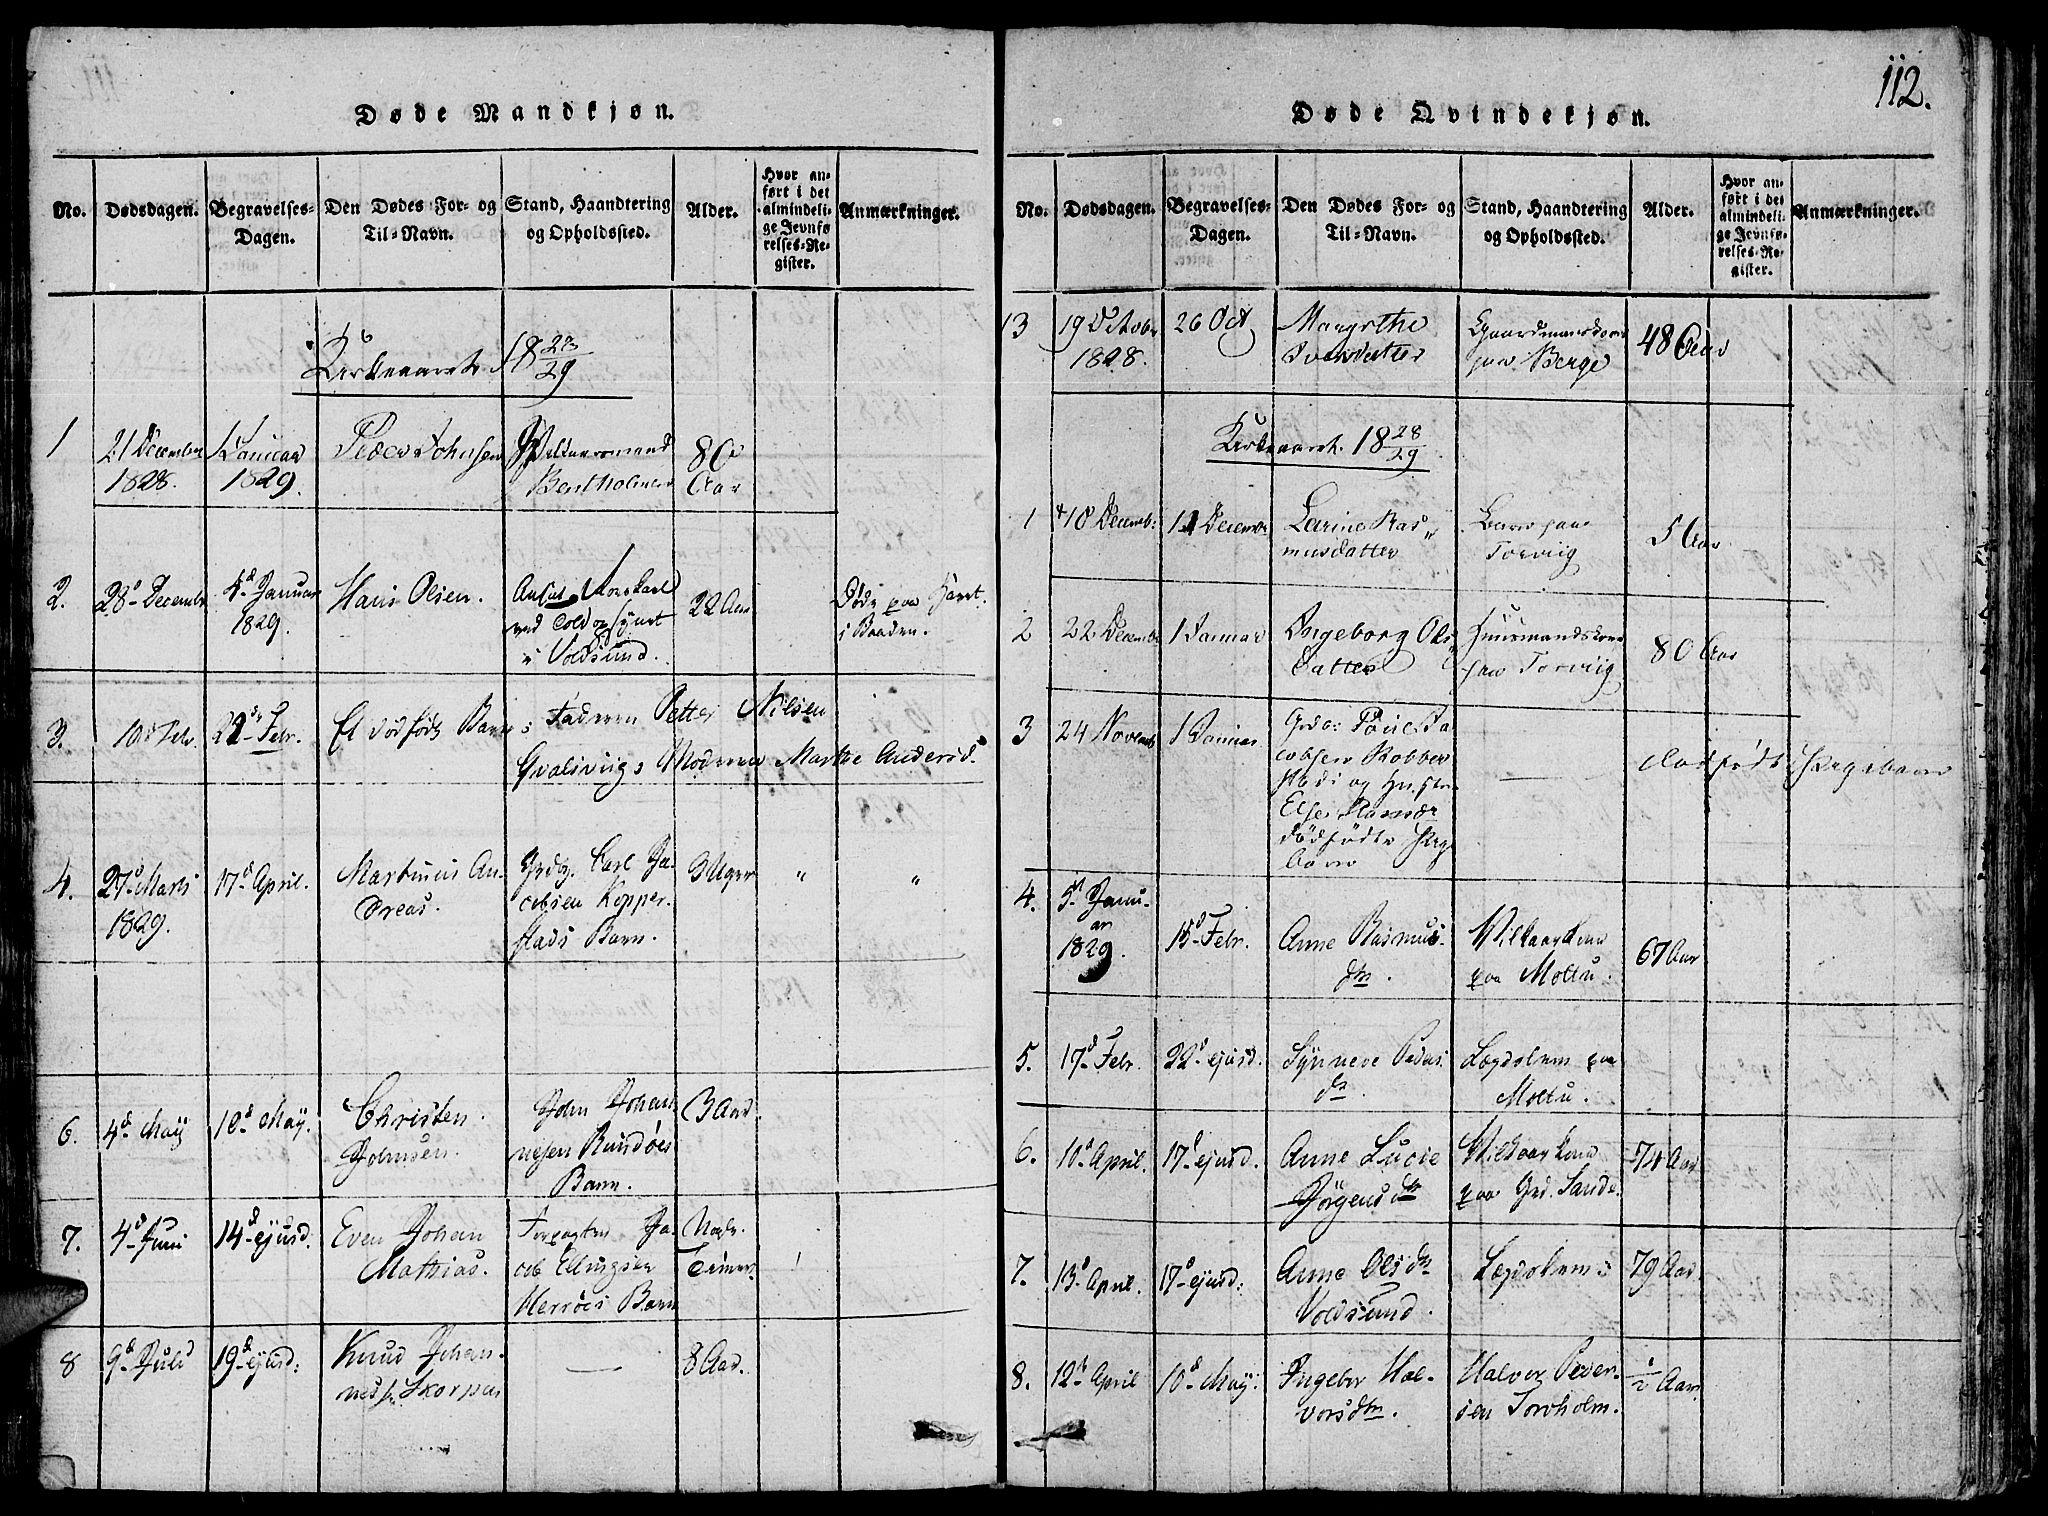 112.
Døde Mandkjøn.
No.
Dødsdagen.
Begravelses-
Dagen.
Den Dødes For- og
Til-Navn.
Stand, Haandtering
og Opholdssted.
Alder.
Hvor an-
ført i det
almindeli-
ge Jevnfø-
relses-Re-
gister.
Anmærkninger.
Kirkeaaret 18 28/29
1
21 December
1828.
1 Januar
1829.
Peder Johnsen
80
Aar
2.
28de December
4d Januar
1829.
Hans Olsen.
ved Told
i Voldsund.
22 Aar
Døde paa Havet
i Baaden.
3.
10d Febr.
22de Febr.
Et dødfødt Barn
Faderen Petter Nilsen
Qvalsvig Moderen Marthe Andersd.
4.
27d Marts
1829.
17d April.
Martinus An-
dreas.
Grdbr. Carl Ja-
cobsen Kopper-
stads Barn.
3 Uger
"
"
6.
4d May
10d May.
Christen
Johnsen.
John Johan-
nesen Rundöes
Barn.
3 Aar.
7.
4d Juni
14d ejusd.
Even Johan
Mathias.
Forpagter Ja-
cob Ellingsen
Herröes Barn
8
9d Juli
19d ejusd:
Knud Johan-
ness. Skorpen
—
8 Aar.
Døde Qvindekjøn.
No.
Dødsdagen.
Begravelses-
Dagen.
Den Dødes For- og
Til-Navn.
Stand, Haandtering
og Opholdssted.
Alder.
Hvor an-
ført i det
almindeli-
ge Jevnfø-
relses-Re-
gister.
Anmærkninger.
13
19 October
1828.
26 Oct
Margrethe
Iversdatter
Gaardmandskone
paa Berge
48 Aar
Kirkeaaret 18 28/29
1
10 Decemb:
11 Decembr
Larine Ras-
musdatter
Barn paa
Torviig
5 Aar
2
22 Decembr
1 Januar
Ingeborg Ols
datter
Huusmandskone
paa Torviig
80 Aar
3
24 Novemb
1 Januar
Grdbr: Poul Ja-
cobsen Kobber-
stad og Hustr.
Else
dödfödte Pige
barn
—
dødfødt Pigebarn
4.
5t Janu-
ar
1829.
15d Febr.
Anne Rasmus-
dtr.
Vilkaarskone
paa Moltu.
67 Aar
5.
17d Febr.
22d ejusd.
Synneve Peders
dtr.
Lægdslem paa
Moltu.
6.
10d April.
17d ejusd.
Anne Lucie
Jörgensdtr
Vilkaarskone
paa Grd. Sande.
74 Aar
7.
13d April.
17d ejusd:
Anne Olsdtr
Voldsund.
Lægdslem
79 Aar
8.
12t April
10d May.
Ingeber Hal-
vorsdtr.
Halvor Peder-
sen Torvholm.
1/2 Aar